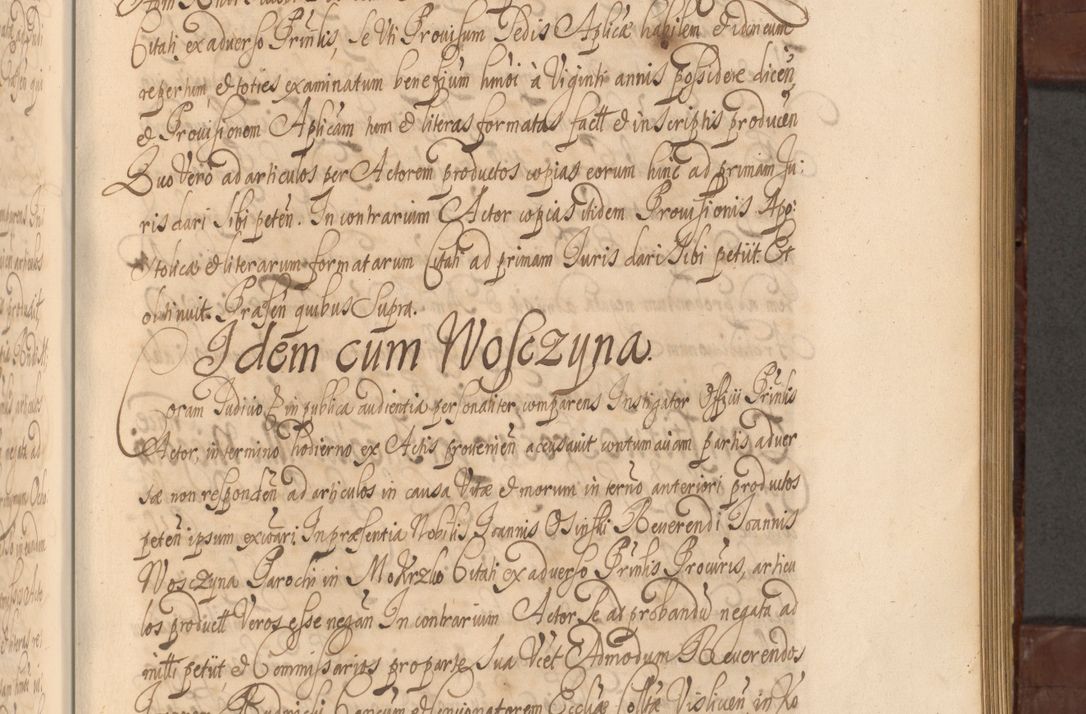 Citati ex adverso Prinlis, se Vti Prouisum Sedis Aplicæ habilem et idoneum
repertum, et toties examinatum benefium hmoi à Viginti annis possidere dicen
et Prouisionem Aplicam tum et literas formatas factt et in scriptis producen
Quo Vero ad articulos per Actorem productos copias eorum hinc ad primam Ju:
ris dari sibi peten. In contrarium Actor copias itidem Prouisionis Apo:
stolicæ et literarum formatarum Citati ad primam Juris dari sibi petut. Et
obtinuit. Præsen quibus Supra.
Idem cum Wosczyna.
Coram Judicio et in publica audientia personaliter comparens Instigator Officii Prinlis
Actor, in termino hodierno ex Actis provenien accusavit contumaciam partis adver
sæ non responden ad articulos in causa Vitæ et morum in terno anteriori productos
peten ipsum excōari. In præsentia Nobilis Joannis Osinski Reverendi Joannis
Wosczyna Parochi in Mokrzko Citati ex adverso Prinlis Procuris, articu
los productt Veros esse negan In contrarium Actor, se ad probandū negata ad
mitti petut et Commissarios pro parte sua Vcet Admodum Reverendos
Canonicum et Ecclæ Collæ Vislicen in